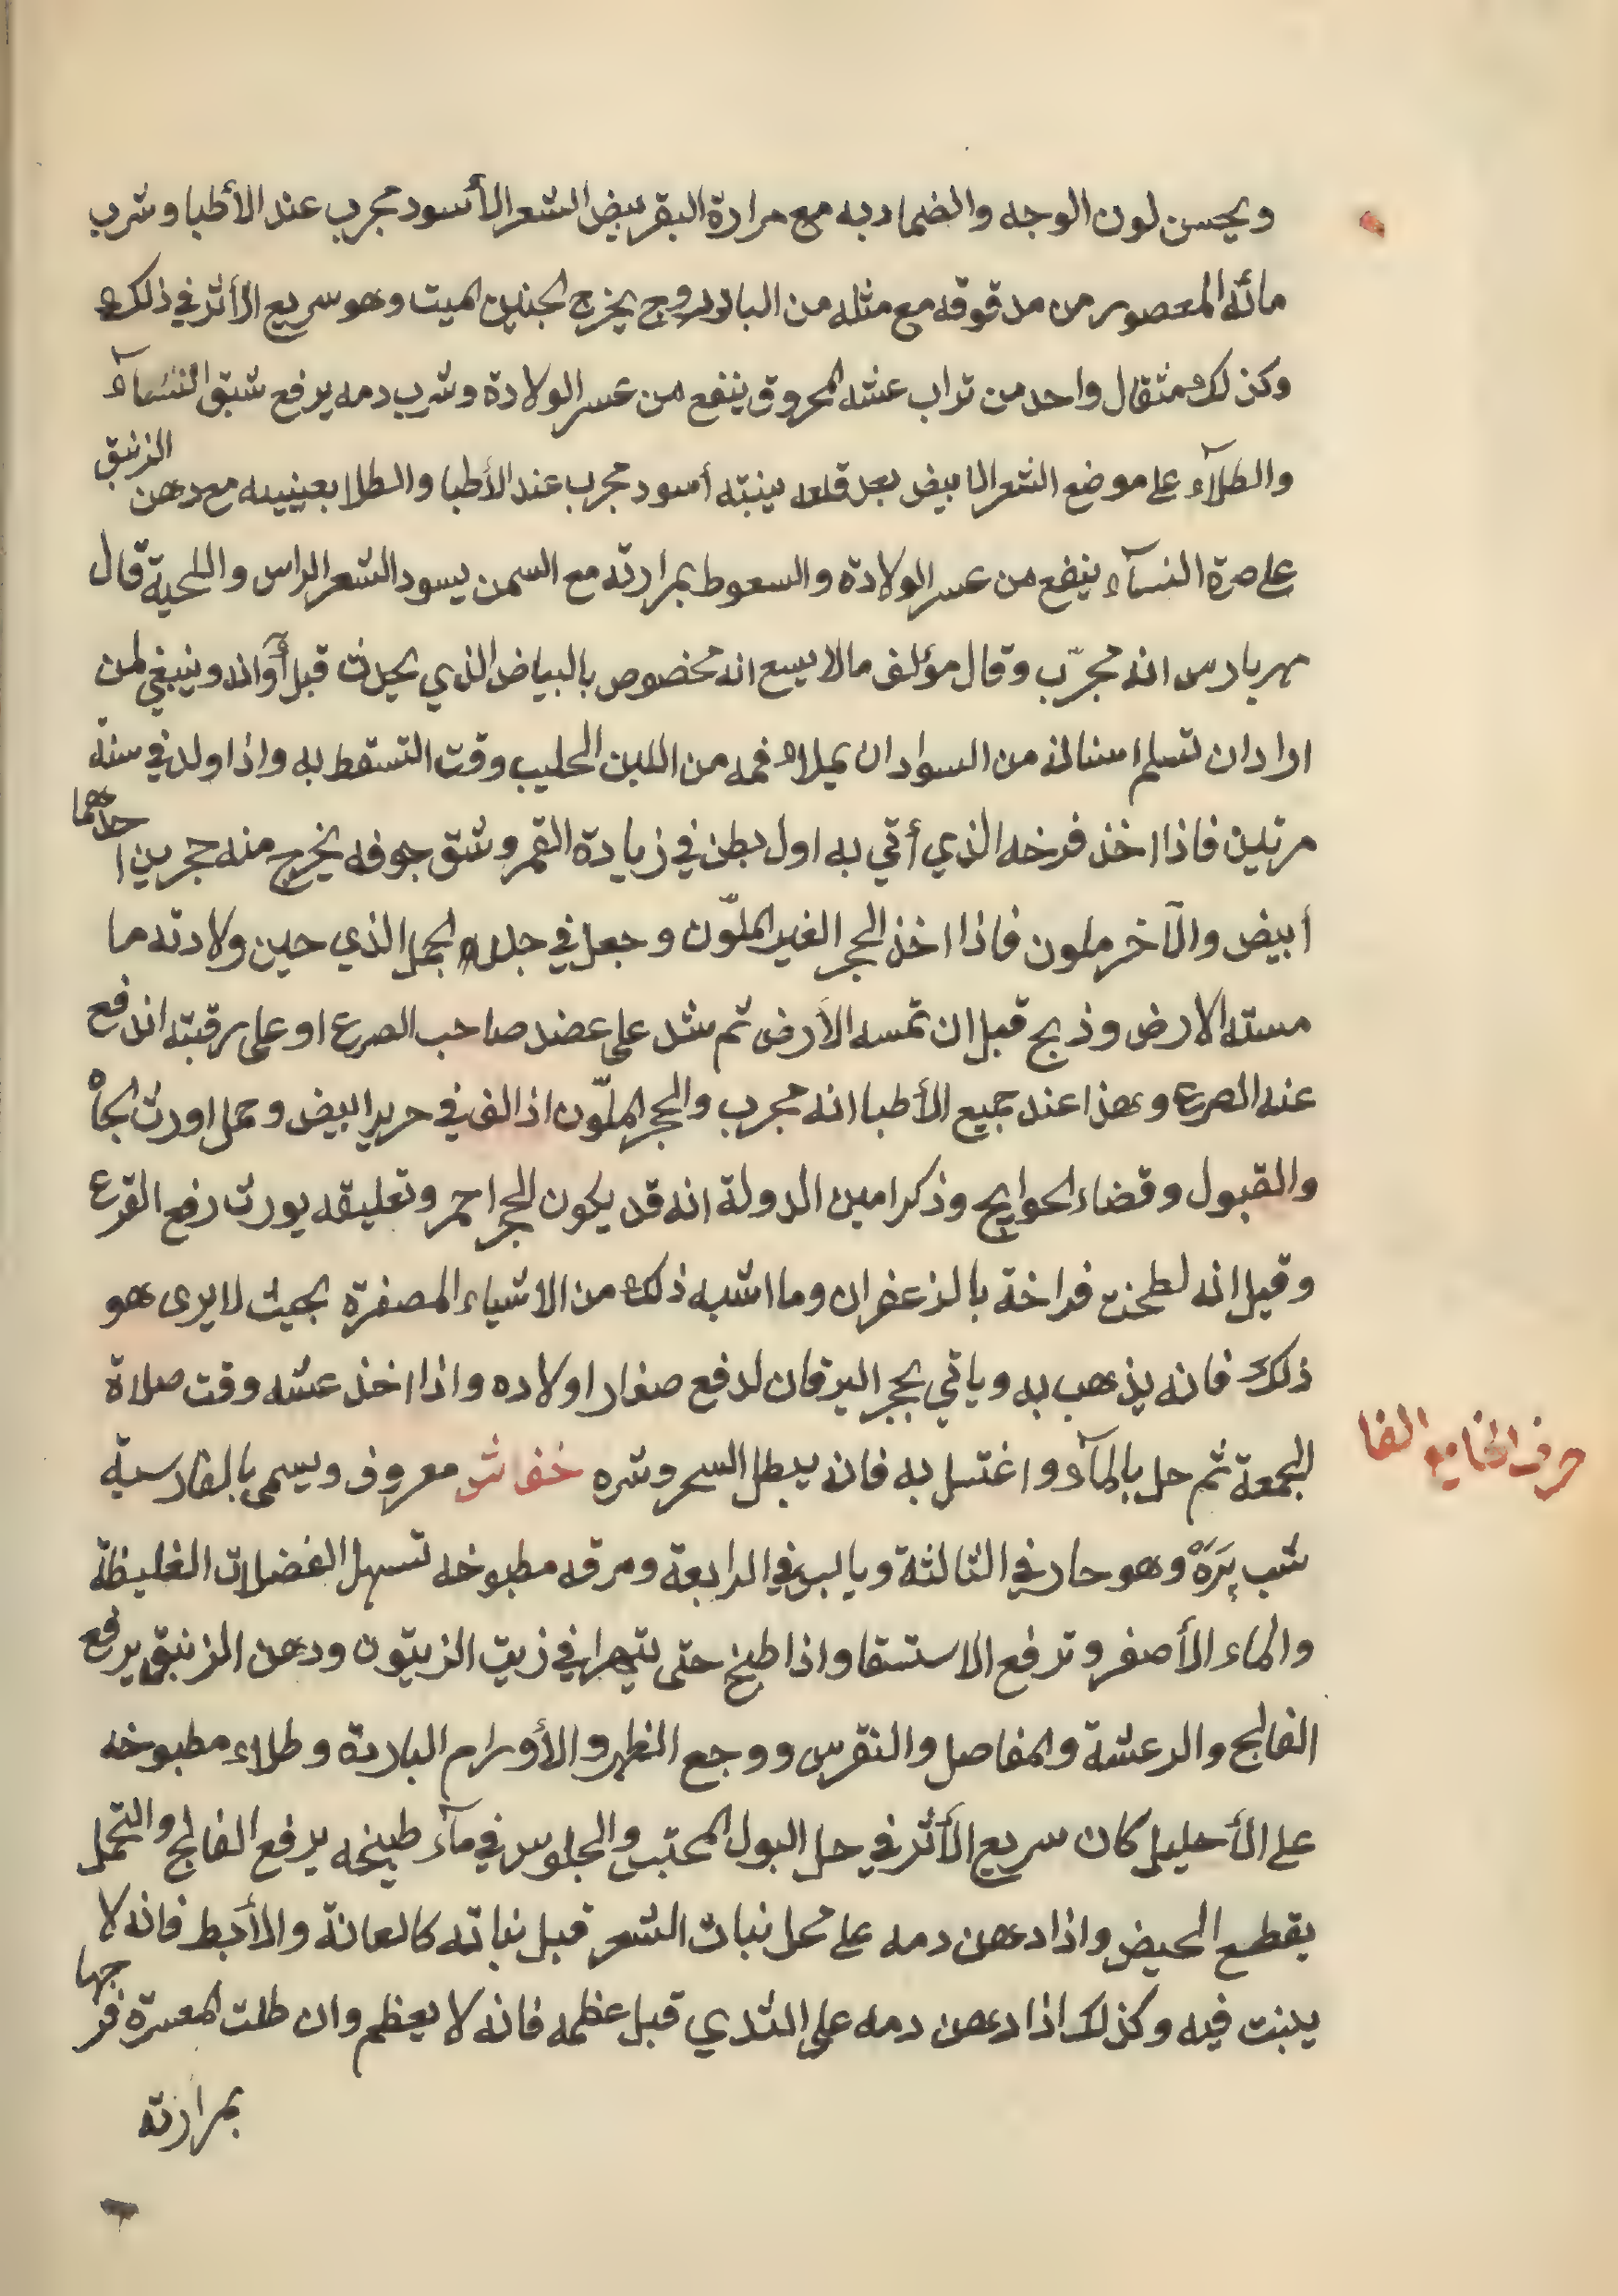 ويحسن لون الوجه والضماد به مع مرارة البقر يبيض الشعر الأسود مجرب عند الأطبا وشرب
مائه المعصور من مدقوقه مع مثله من البادروج يخرج الجنين الميت وهو سريع الأثر في ذلك
وكذلك مثقال واحد من تراب عشه المحروق ينفع من عسر الولادة وشرب دمه يرفع شبق النسآء
والطلآء على موضع الشعر الابيض بعد قلعه ينبته أسود مجرب عند الأطبا والطلا بعينيه مع دهن الزنبق
على صرة النسآء ينفع من عسر الولادة والسعوط بمرارته مع السمن يسود الشعر الراس واللحية قال
مهربادرس انه مجرّب وقال مؤلف مالا يسع انه مخصوص بالبياض الذي يحدث قبل أوانه وينبغي لمن
اراد ان تسلم اسنانه من السواد ان يملاء فمه من اللبن الحليب وقت التسقط به واذا ولد في سنة
مرتين فاذا اخذ فرخه الذي أتي به اول بطن في زيادة القمر وشق جوفه يخرج منه حجرين احدهما
أبيض والآخر ملون فاذا اخذ الحجر الغير الملّون وجعل في جلد الجمل الذي حين ولادته ما
مسته الارض وذبح قبل ان تمسه الأرض ثم شد على عضد صاحب الصرع او على رقبته اندفع
عنه الصرع وهذا عند جميع الأطبا انه مجرب والحجر الملّون اذا لف في حرير ابيض وحمل اورث الجاه
والقبول وقضاء الحوايج وذكر امين الدولة انه قد يكون الحجر احمر وتعليقه يورث رفع القرع
وقيل انه لطخت فراخة بالزعفران وما اشبه ذلك من الاشياء المصفرة بحيث لا يرى هو
ذلك فانه يذهب به وياتي بحجر اليرقان لدفع صفار اولاده واذا اخذ عشه وقت صلاة
الجمعة ثم حل بالمآء واغتسل به فانه يبطل السحر وشره خفاش معروف ويسمى بالفارسية
حرف الخا مع الفا
شب پَرَهْ وهو حار في الثالثة ويابس في الرابعة ومرقه مطبوخه تسهل الفضلات الغليظة
والماء الأصفر وترفع الاستسقا واذا طبخ حتى يتهرا في زيت الزيتون ودهن الزنبق يرفع
الفالج والرعشة والمفاصل والنقرس ووجع الظهر والأورام الباردة وطلاء مطبوخه
على الأحليل كان سريع الأثر في حل البول المحتبس والجلوس في مآء طبيخه يرفع الفالج والتحمل
يقطع الحيض واذا دهن دمه على محل نبات الشعر قبل نباته كالعانة والأبط فانه لا
ينبت فيه وكذلك اذا دهن دمه على الثدي قبل عظمه فانه لا يعظم وان طلت المعسرة فرجها
بمرارته